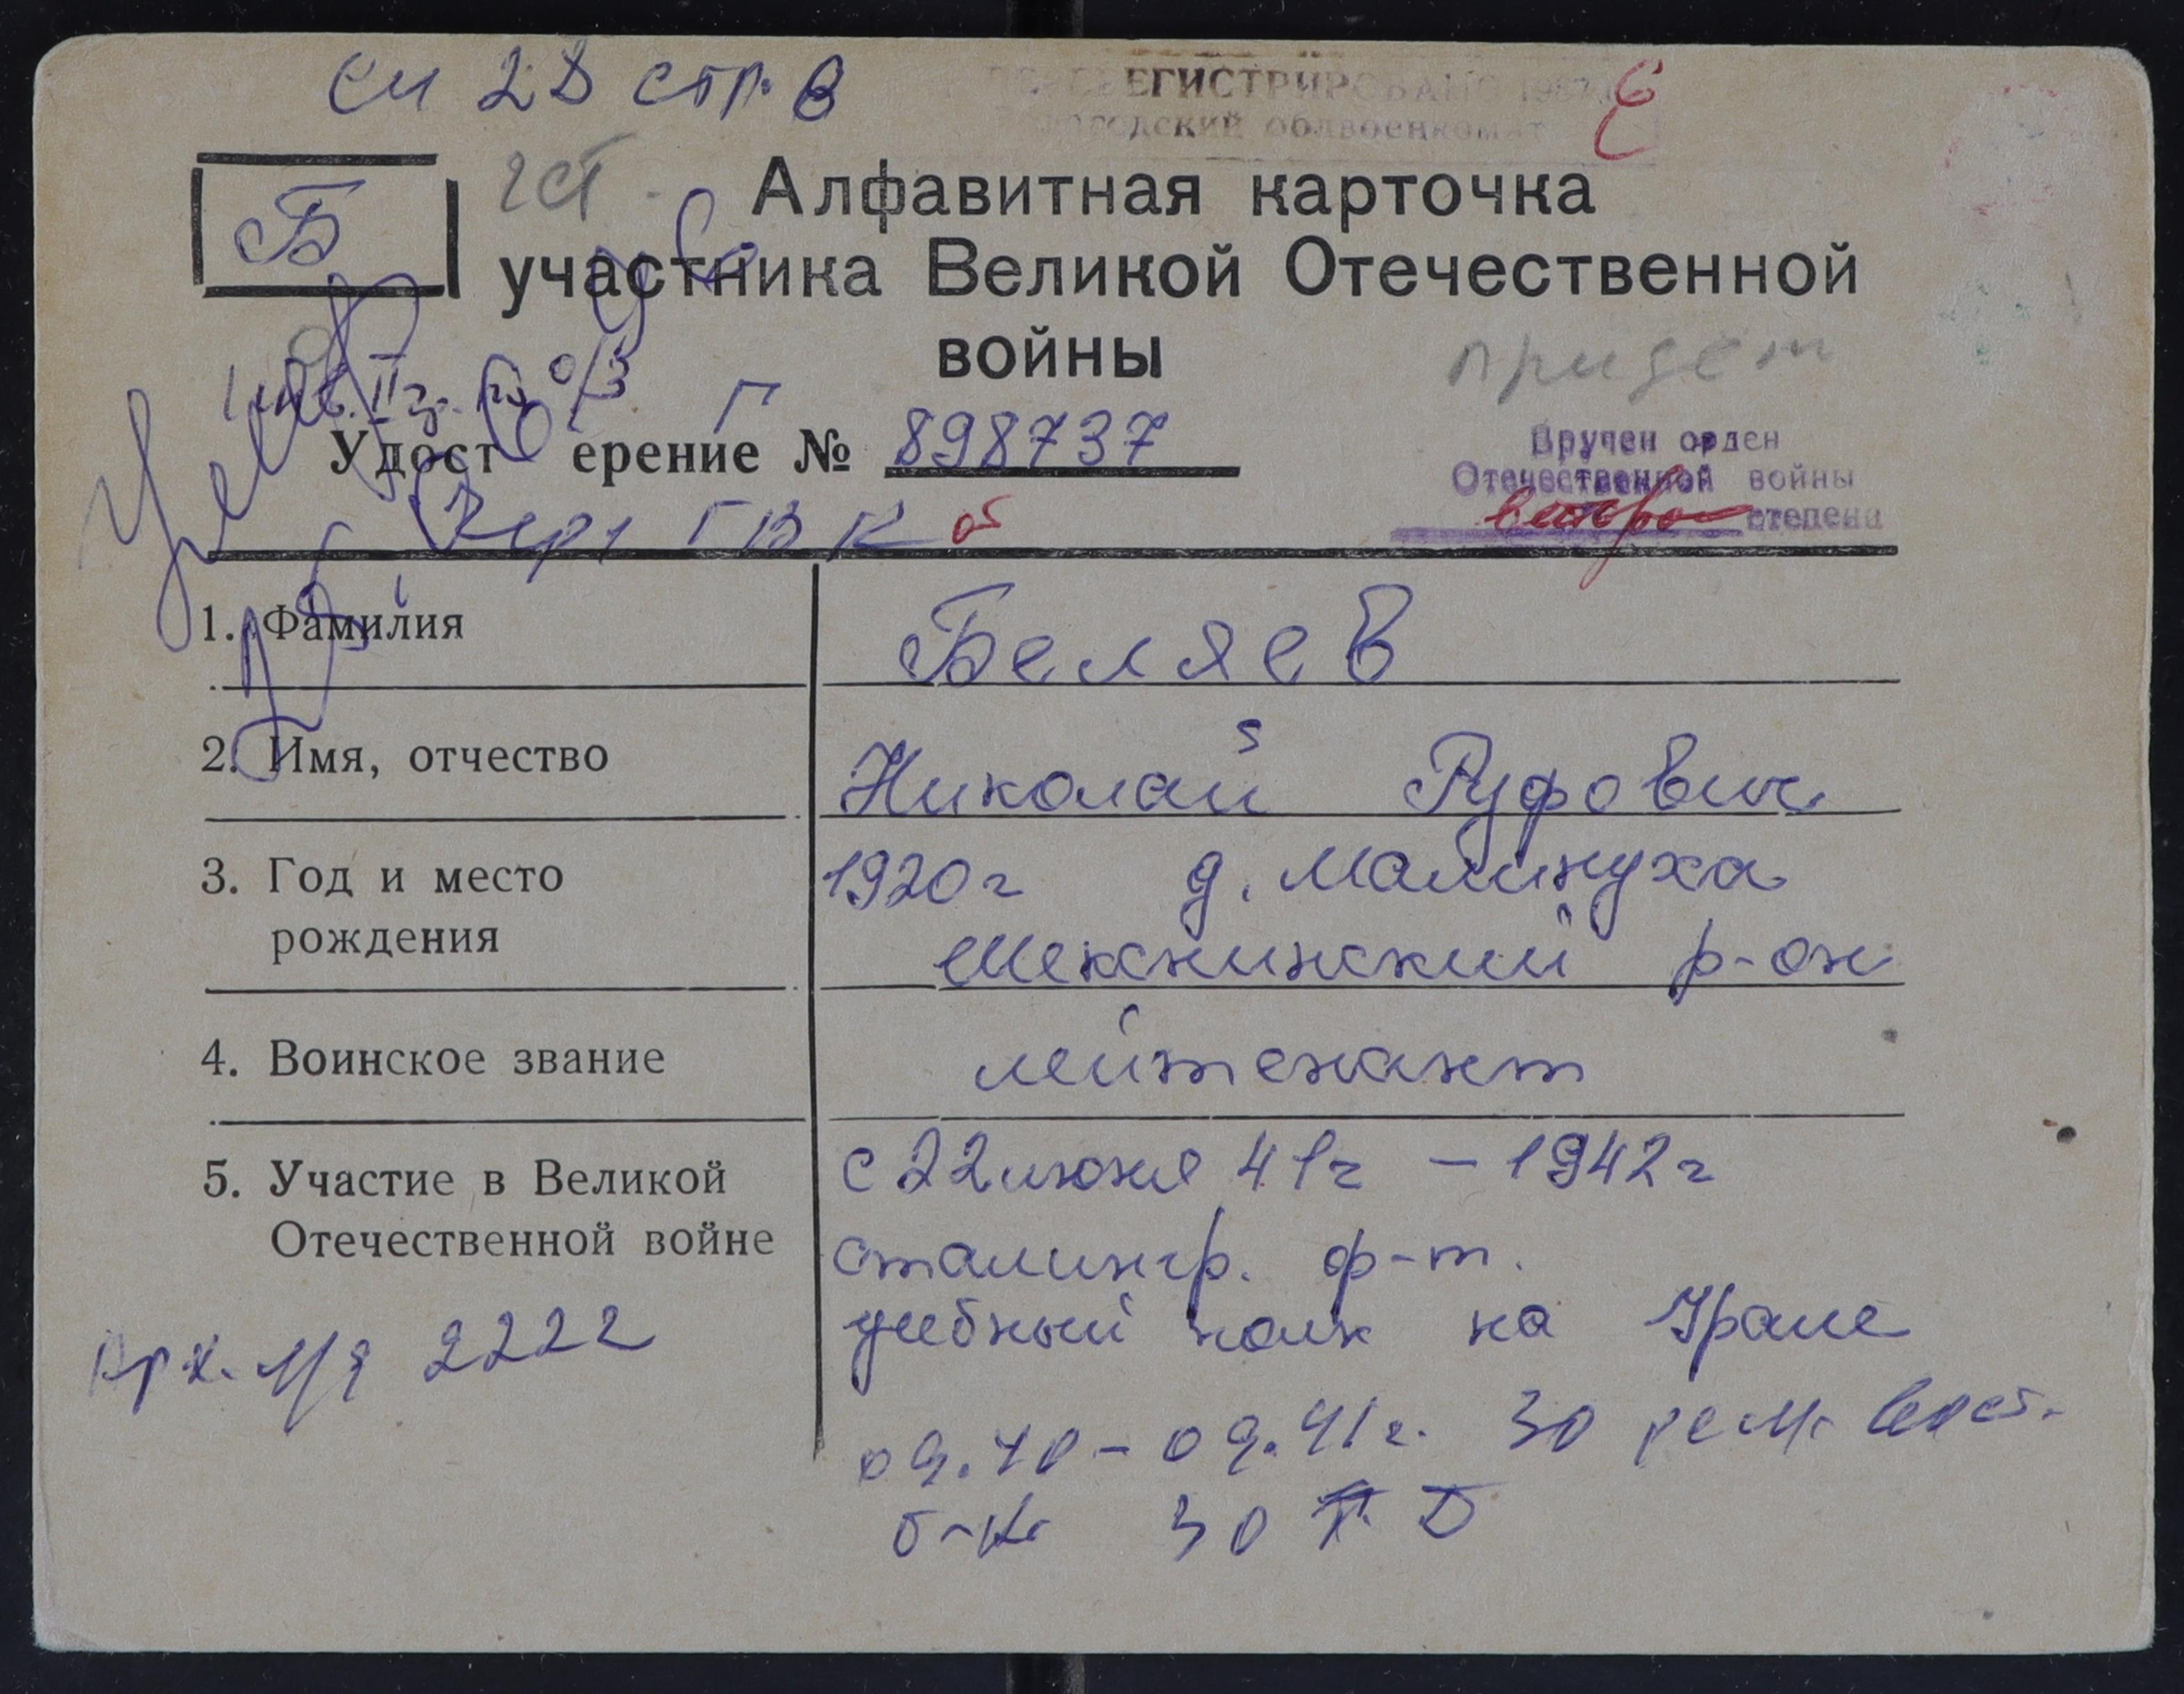 стр. 8
ЕГИСТРИРОВАНО 1987
облвоенкомат
Б
Алфавитная карточка
участника Великой Отечественной
войны
придет
Г
Удост ерение № 898737
Вручен орден
Отечественной войны
второй степени
ГВК
1. Фамилия Беляев
2. Имя, отчество Николай Руфович
3. Год и место рождения 1920г д. Малинуха
Шекснинский р-он
4. Воинское звание лейтенант
5. Участие в Великой Отечественной войне с 22 июня 41г – 1942г
Сталингр. ф-т.
учебный полк на Урале
Арх. 2222
09.40 – 09.41г. 30 рем. вост.
б-н 30